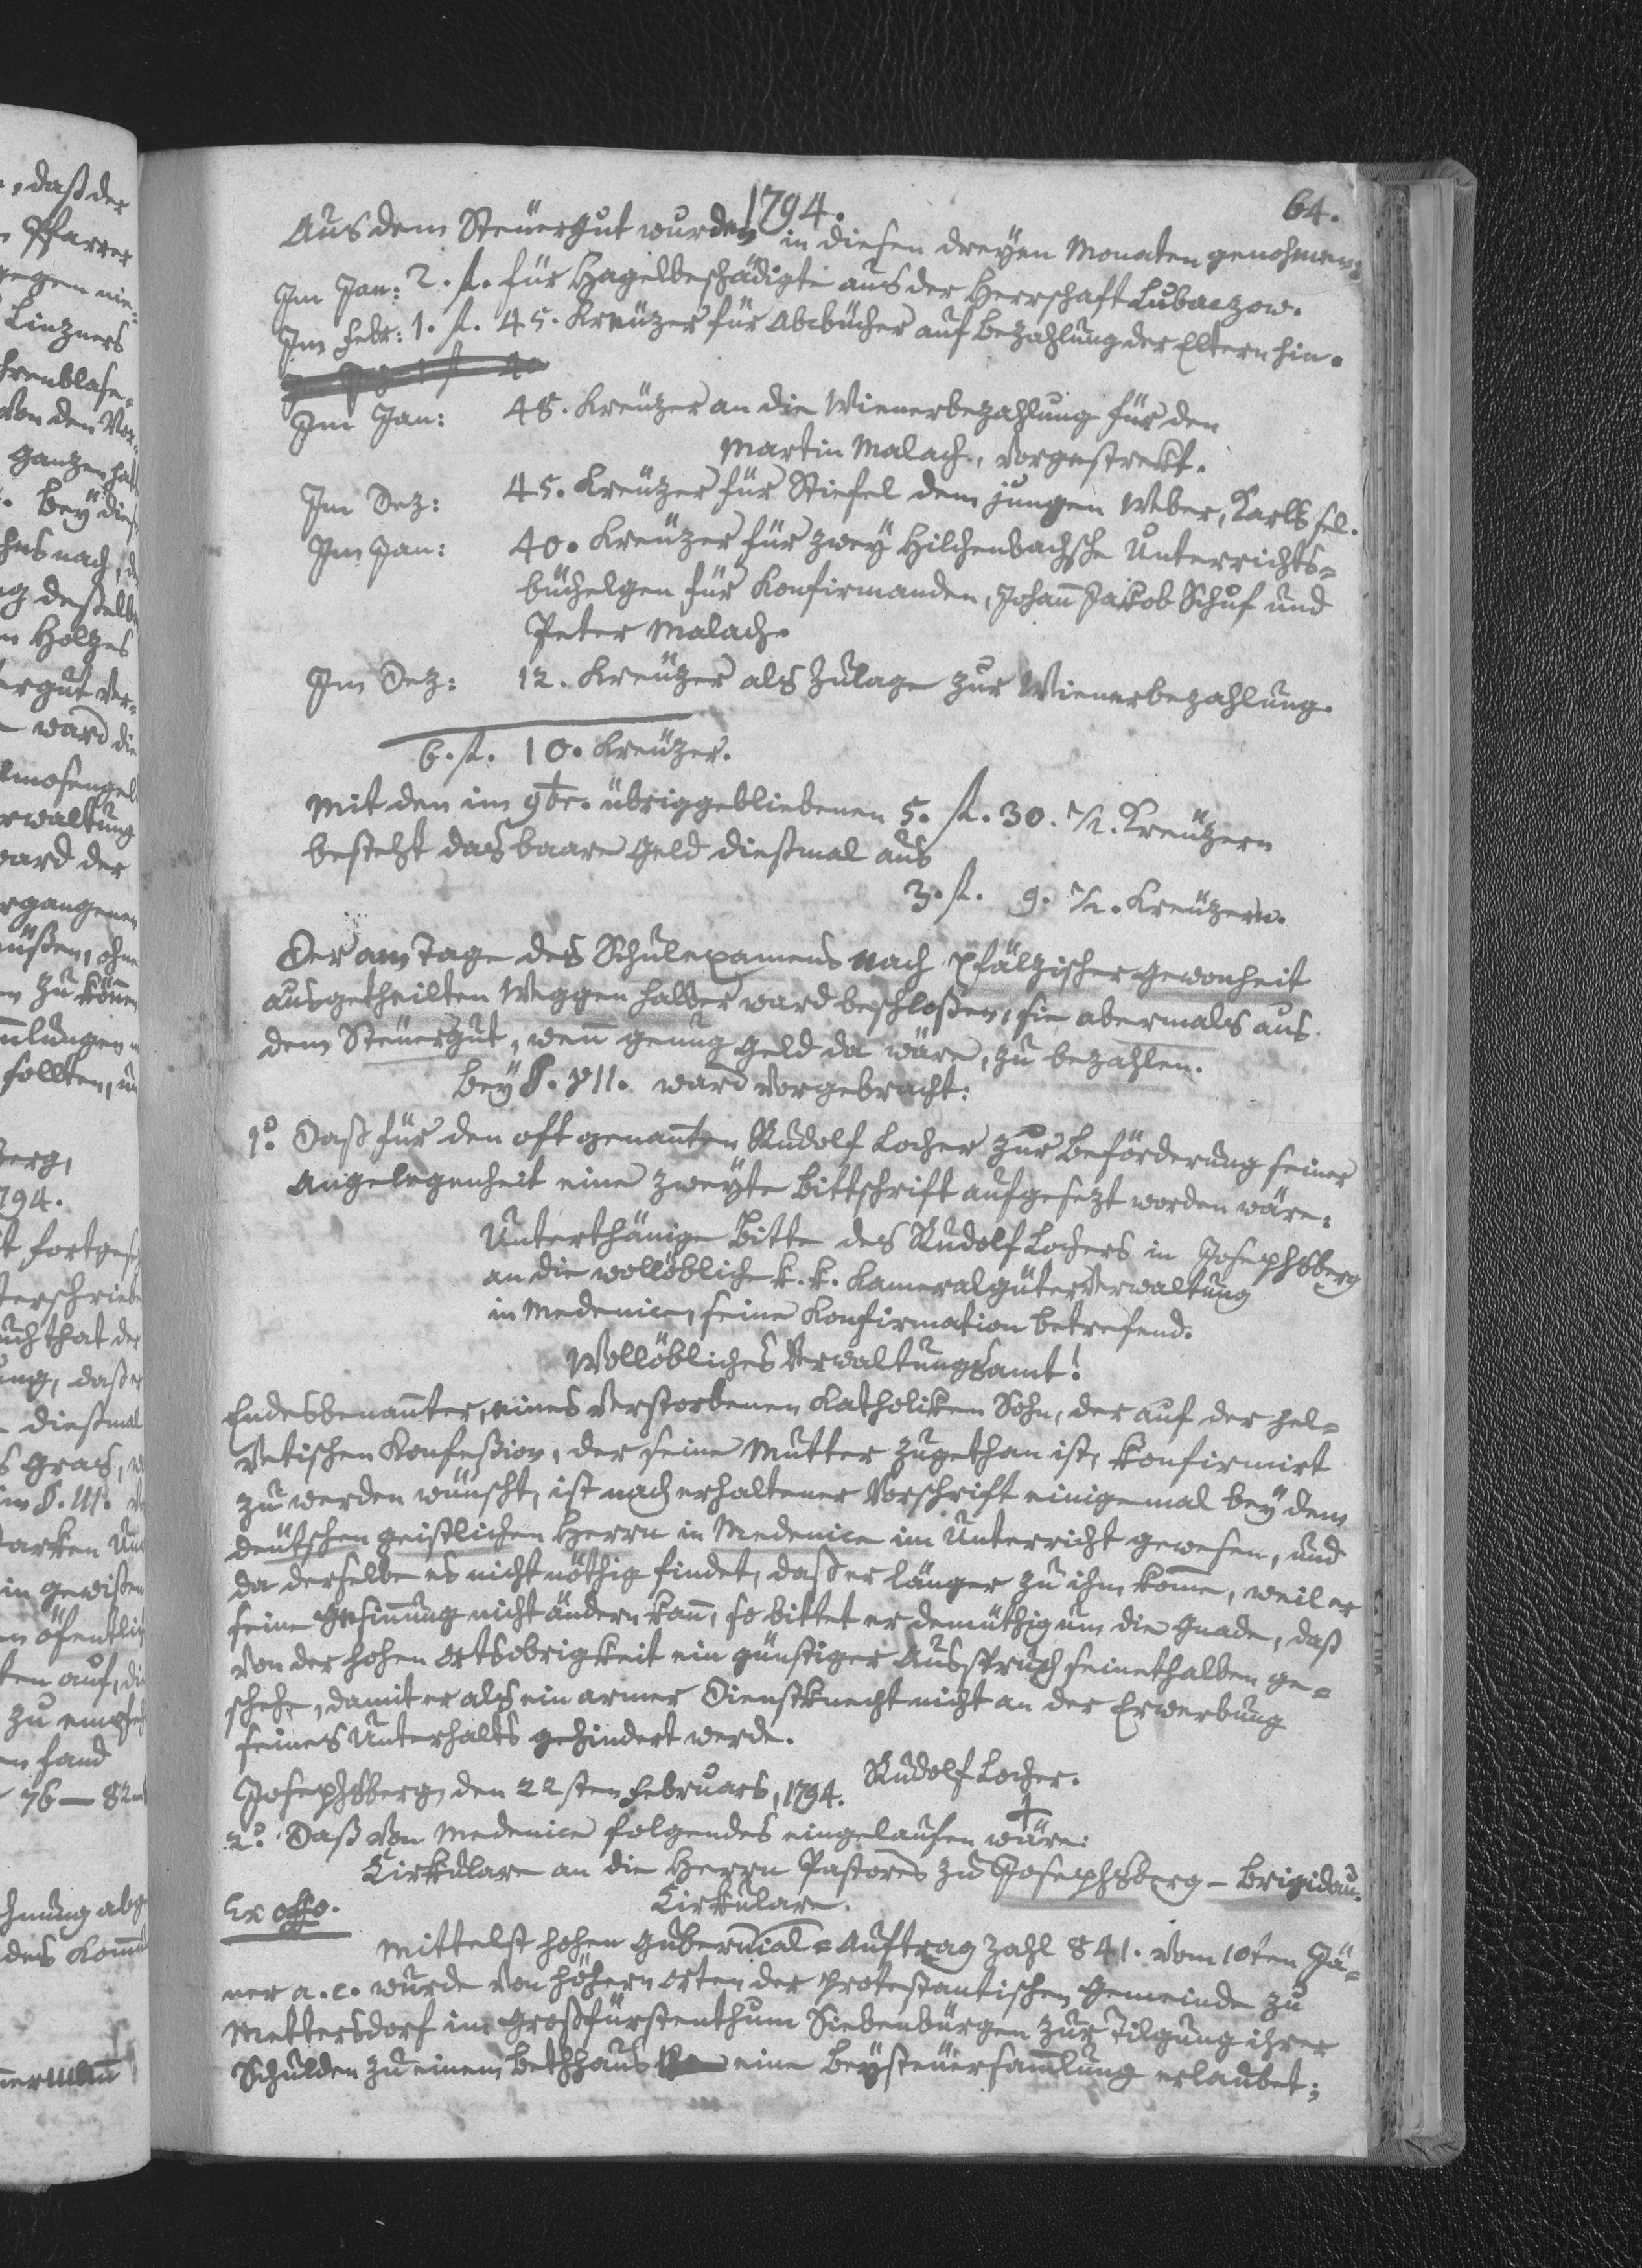 1794.
64.
Aus dem Steuergut wurden in diesen dreyen Monaten genohmen:
Im Jan: 2. fl. für Hagelbeschädigte aus der Herrschaft Lubaczow.
Im Febr: 1. fl. 45. Kreuzer für Abcbücher auf Bezahlung der Eltern hin.
Im Jan: 48. Kreuzer an die Wienerbezahlung für den
Martin Malach, vorgestrekt.
Im Dez: 45. Kreuzer für Stiefel dem jungen Weber, Karls sel.
Im Jan: 40. Kreuzer für zwey Hilchenbachsche Unterrichts=
büchelgen für Konfirmanden, Johann Jakob Schuf und
Peter Malach.
Im Dez: 12. Kreuzer als Zulage zur Wienerbezahlung.
6. fl. 10. Kreuzer.
Mit den im 9br. übriggebliebenen 5. fl. 30. 1/2. Kreuzern
besteht das baare Geld dießmal aus
3. fl. 9. 1/2. Kreuzern.
Der am Tage des Schulexamens nach pfälzischer Gewonheit
ausgetheilten Weggen halber ward beschloßen, sie abermals aus
dem Steuergut, wenn genug Geld da wäre, zu bezahlen.
Bey §. VII. ward vorgebracht:
1o. Daß für den oft genannten Rudolf Locher zur Beförderung seiner
Angelegenheit eine zweyte Bittschrift aufgesezt worden wäre:
Unterthänige Bitte des Rudolf Lochers in Josephsberg
an die wollöbliche k. k. Kameralgüterverwaltung
in Medenice, seine Konfirmation betrefend.
Wollöbliches Verwaltungsamt!
Endesbenannter, eines verstorbenen Katholiken Sohn, der auf der hel=
vetischen Konfeßion, der seine Mutter zugethan ist, konfirmirt
zu werden wünscht, ist nach erhaltener Vorschrift einigemal bey dem
deutschen geistlichen Herrn in Medenice im Unterricht gewesen, und
da derselbe es nicht nöthig findet, daß er länger zu ihm komme, weil er
seine Gesinnung nicht ändern kann, so bittet er demüthig um die Gnade, daß
von der hohen Ortsobrigkeit ein günstiger Ausspruch seinethalben ge=
schehe, damit er als ein armer Dienstknecht nicht an der Erwerbung
seines Unterhalts gehindert werde.
Josephsberg den 22sten Februars, 1794. Rudolf Locher.
+
2o. Daß von Medenice folgendes eingelaufen wäre:
Cirkulare an die Herrn Pastores zu Josephsberg – Brigidau.
Ex offo. Cirkulare.
Mittelst hohen Gubernial=Auftrag Zahl 841. vom 10ten Jä=
ner a. c. wurde von höhern Orten der protestantischen Gemeinde zu
Mettersdorf im Großfürstenthum Siebenbürgen zur Tilgung ihrer
Schulden zu einem Bethhaus eine Beysteuersammlung erlaubet;